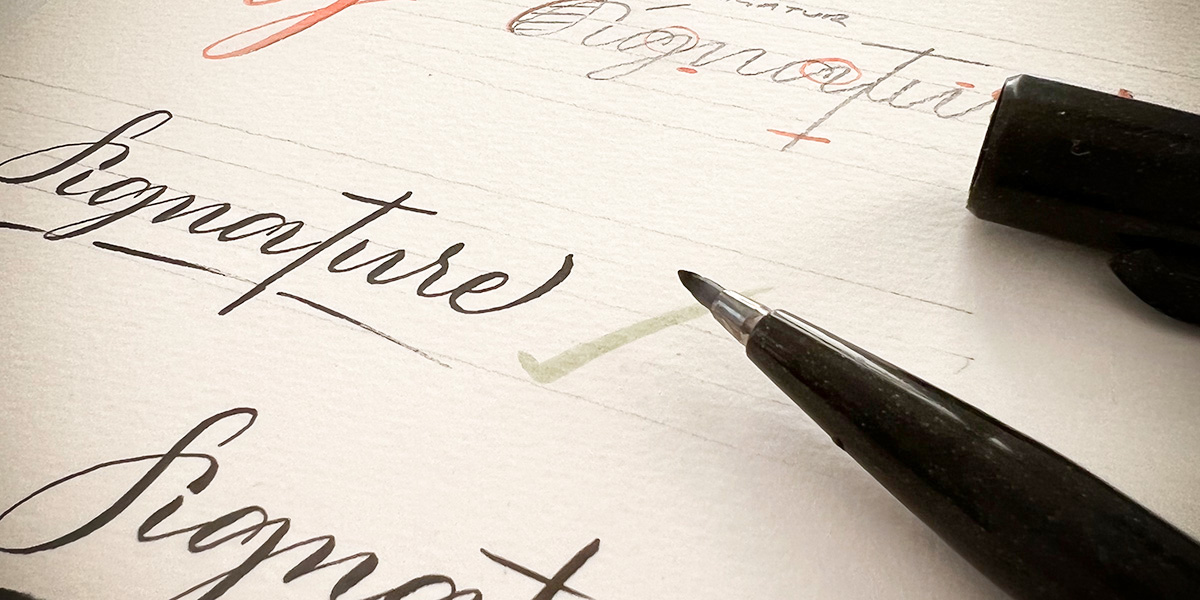 Signatur
Signature
Signat